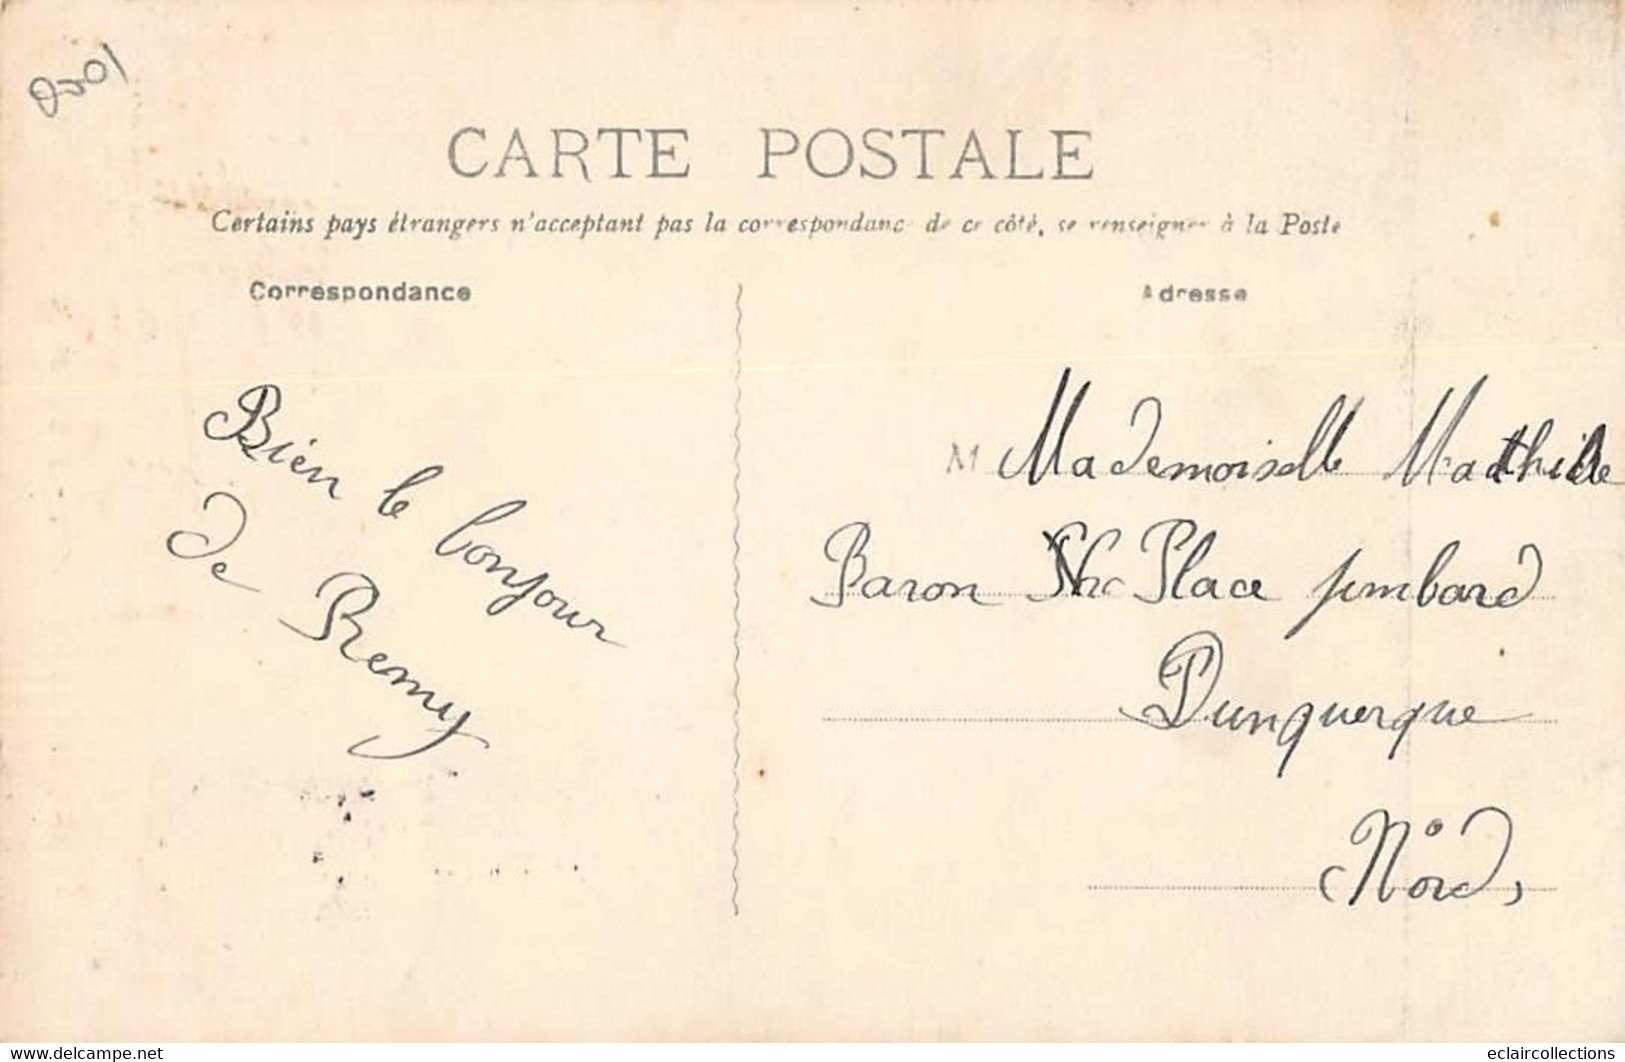 CARTE POSTALE
Certains pays étrangers n'acceptant pas la correspondance de ce côté, se renseigner à la Poste
Correspondance
Adresse
Bien le bonjour
de Remy
M Mademoiselle Mathilde
Baron Place jembard
Dunquerque
Nord,
eclaircollections